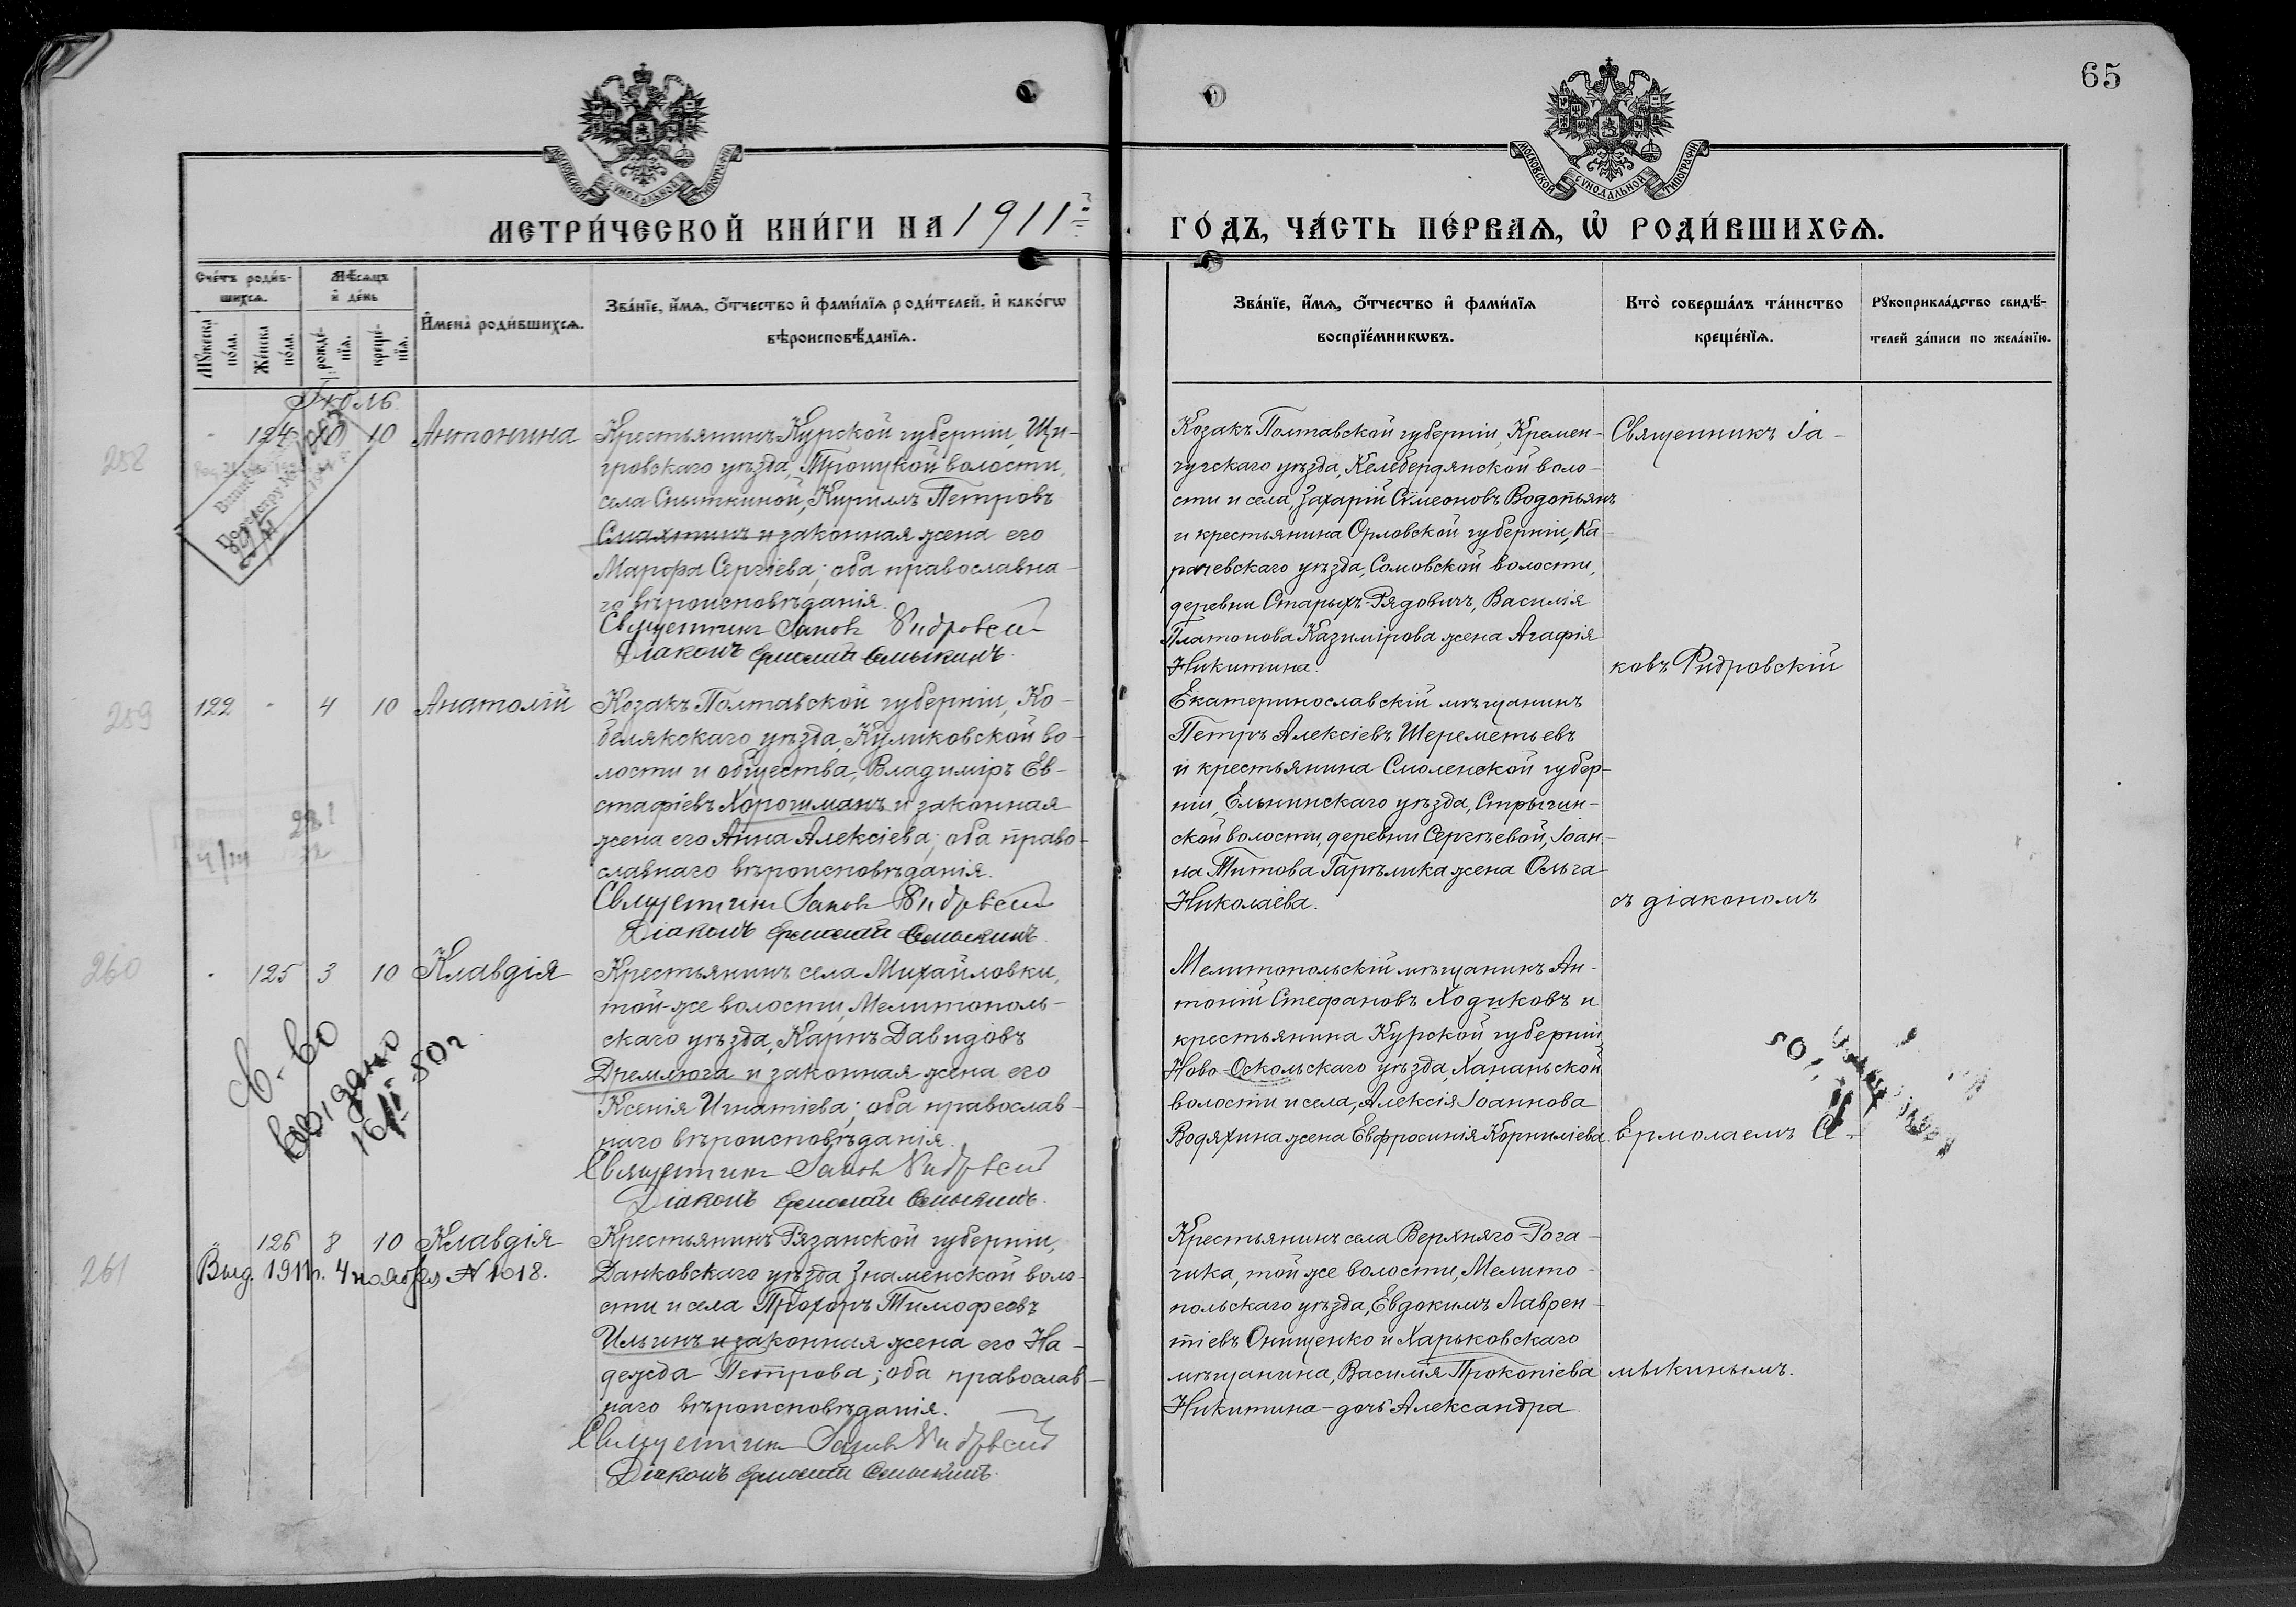 65
МОСКОВСКОЙ СѴНОДАЛЬНОЙ ТИПОГРАФІИ
МОСКОВСКОЙ СѴНОДАЛЬНОЙ ТИПОГРАФІИ
МЕТРИ́ЧЕСКОЙ КНИ́ГИ НА 1911й
ГО́ДЪ, ЧА́СТЬ ПЕ́РВАѦ, Ѡ҆ РОДИ́ВШИХСѦ.
Сче́тъ роди́в-
шихсѧ.
Мѣ́сѧцъ
и҆ де́нь
Мꙋ́жеска по́ла.
Же́нска по́ла.
рожде́-нїѧ.
креще́-нїѧ.
И҆мена̀ роди́вшихсѧ.
Зва́нїе, и҆́мѧ, ѻ҆́тчество и҆ фами́лїѧ роди́телей, и҆ како́гѡ
вѣроисповѣ́данїѧ.
Зва́нїе, и҆́мѧ, ѻ҆́тчество и҆ фами́лїѧ
воспрїе́мникѡвъ.
Кто̀ соверша́лъ та́инство
креще́нїѧ.
Рꙋкоприкла́дство свидѣ́-
телей за́писи по жела́нїю.
Іюль
258
124 10 Антонина
Крестьянинъ Курской губерніи, Щи-
гровскаго уѣзда, Троицкой волости,
села Сныткиной, Кириллъ Петровъ
Смахтинъ и законная жена его
Марѳа Сергіева; оба православна-
го вѣроисповѣданія.
Священникъ Іаковъ Ридровскій
Діаконъ Ермолай Смыкинъ.
Козакъ Полтавской губерніи, Кремен-
чугскаго уѣзда, Келебердянской воло-
сти и села, Захарій Сѵмеоновъ Водопьянъ
и крестьянина Орловской губерніи, Ка-
рачевскаго уѣзда, Сомовской волости,
деревни Старыхъ-Рядовичъ, Василія
Платонова Казимірова жена Агафія
Никитина.
Священникъ Іа-
ковъ Ридровскій
259
122 - 4 10 Анатолій
Козакъ Полтавской губерніи, Ко-
белякскаго уѣзда, Куликовской во-
лости и общества, Владиміръ Ев-
стафіевъ Хорошманъ и законная
жена его Анна Алексіева; оба право-
славнаго вѣроисповѣданія.
Священникъ Іаковъ Ридровскій
Діаконъ Ермолай Смыкинъ.
Екатеринославскій мѣщанинъ
Петръ Алексіевъ Шереметьевъ
и крестьянина Смоленской губер-
ніи, Ельнинскаго уѣзда, Стрыгин-
ской волости, деревни Сергѣевой, Іоан-
на Титова Гарѣлика жена Ольга
Николаева.
съ діакономъ
260
125 3 10 Клавдія
Крестьянинъ села Михайловки,
той-же волости, Мелитополь-
скаго уѣзда, Карпъ Давидовъ
Дремлюга и законная жена его
Ксенія Игнатіева; оба православ-
наго вѣроисповѣданія.
Священникъ Іаковъ Ридровскій
Діаконъ Ермолай Смыкинъ.
С-во
выдано
16/II 50г
Мелитопольскій мѣщанинъ Ан-
тоній Стефановъ Ходиковъ и
крестьянина Курской губерніи,
Ново-Оскольскаго уѣзда, Хананьской
волости и села, Алексія Іоаннова
Водяхина жена Евфросинія Корниліева.
Ермолаемъ С-
261
126 8 10 Клавдія
Выд. 1911г. 4 ноября № 1018.
Крестьянинъ Рязанской губерніи,
Данковскаго уѣзда Знаменской воло-
сти и села Прохоръ Тимофеевъ
Ильинъ и законная жена его На-
дежда Петрова; оба православ-
наго вѣроисповѣданія.
Священникъ Іаковъ Ридровскій
Діаконъ Ермолай Смыкинъ.
Крестьянинъ села Верхняго-Рога-
чика, той же волости, Мелито-
польскаго уѣзда, Евдокимъ Лаврен-
тіевъ Онищенко и Харьковскаго
мѣщанина, Василія Прокопіева
Никитина-дочь Александра
мыкинымъ.